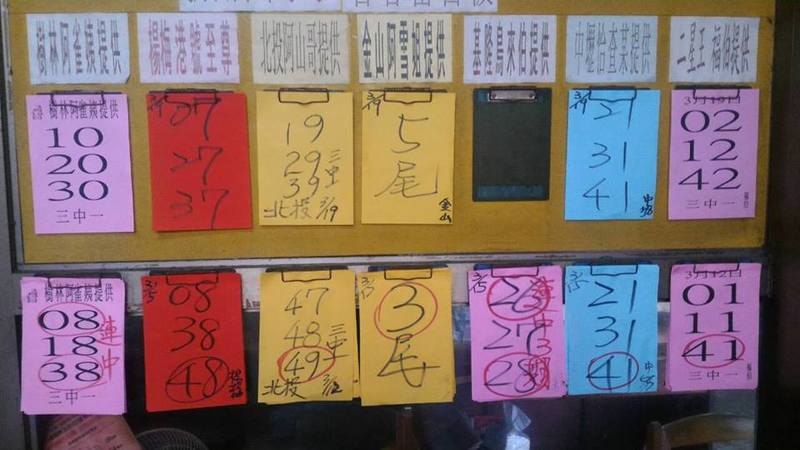 樹林阿雀嬸提供
楊梅港號至尊
北投阿山哥提供
金山阿雪姐提供
基隆鳥來伯提供
中壢怡查某提供
二星王 福伯提供
樹林阿雀嬸提供
10
20
30
三中一
07
27
37
19
29
39
三中
北投 3/19
5
尾
金山
21
31
41
中壢
3月19日
02
12
42
三中一
樹林阿雀嬸提供
08
18
38
連中
三中一
3/15
08
38
48
楊梅
47
48
49
三中
北投 3/12
3
尾
3/15
26
27
28
連中3期
21
31
41
中壢
3月12日
01
11
41
三中一